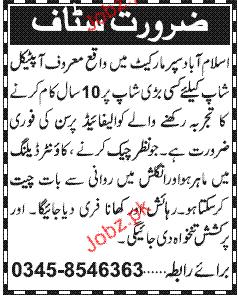 ضرورت سٹاف
اسلام آباد سپر مارکیٹ میں واقع معروف آپٹیکل
شاپ کیلئے کسی بڑی شاپ پر 10 سال کام کرنے
کا تجربہ رکھنے والے کوالیفائیڈ پرسن کی فوری
ضرورت ہے۔ جو نظر چیک کرنے، کاؤنٹر ڈیلنگ
میں ماہر ہو اور انگلش میں روانی سے بات چیت
کر سکتا ہو۔ رہائش اور کھانا فری دیا جائیگا۔ اور
پرکشش تنخواہ دی جائیگی۔
برائے رابطہ......0345-8546363
Jobz.pk
Jobz.pk